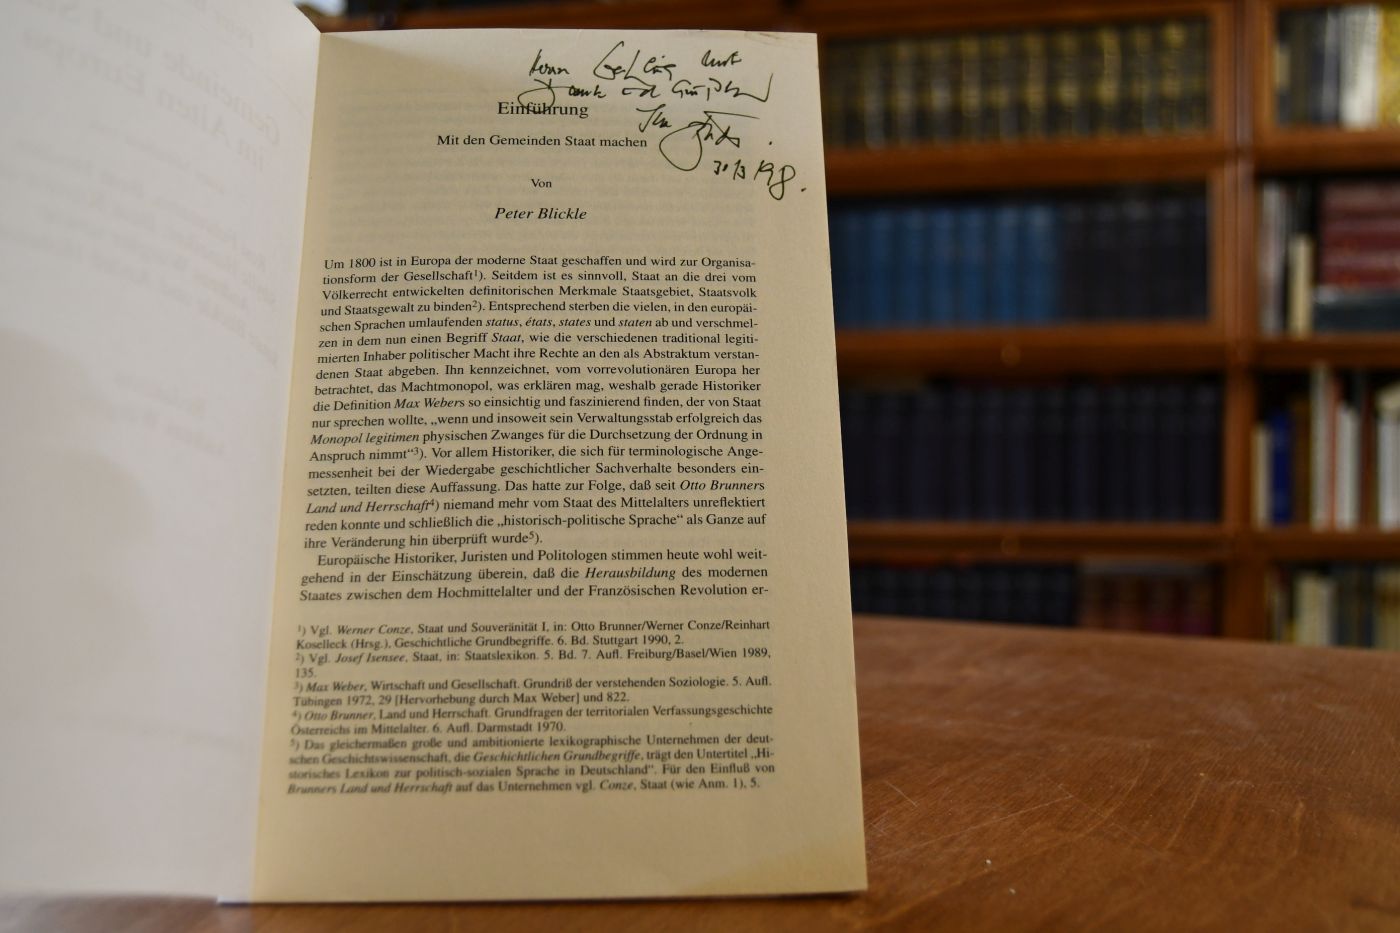 Herrn
mit
Dank und
Ihr
30/3 198.
Einführung
Mit den Gemeinden Staat machen
Von
Peter Blickle
Um 1800 ist in Europa der moderne Staat geschaffen und wird zur Organisa-
tionsform der Gesellschaft¹). Seitdem ist es sinnvoll, Staat an die drei vom
Völkerrecht entwickelten definitorischen Merkmale Staatsgebiet, Staatsvolk
und Staatsgewalt zu binden²). Entsprechend sterben die vielen, in den europäi-
schen Sprachen umlaufenden status, états, states und staten ab und verschmel-
zen in dem nun einen Begriff Staat, wie die verschiedenen traditional legiti-
mierten Inhaber politischer Macht ihre Rechte an den als Abstraktum verstan-
denen Staat abgeben. Ihn kennzeichnet, vom vorrevolutionären Europa her
betrachtet, das Machtmonopol, was erklären mag, weshalb gerade Historiker
die Definition Max Webers so einsichtig und faszinierend finden, der von Staat
nur sprechen wollte, „wenn und insoweit sein Verwaltungsstab erfolgreich das
Monopol legitimen physischen Zwanges für die Durchsetzung der Ordnung in
Anspruch nimmt“³). Vor allem Historiker, die sich für terminologische Ange-
messenheit bei der Wiedergabe geschichtlicher Sachverhalte besonders ein-
setzten, teilten diese Auffassung. Das hatte zur Folge, daß seit Otto Brunners
Land und Herrschaft⁴) niemand mehr vom Staat des Mittelalters unreflektiert
reden konnte und schließlich die „historisch-politische Sprache“ als Ganze auf
ihre Veränderung hin überprüft wurde⁵).
Europäische Historiker, Juristen und Politologen stimmen heute wohl weit-
gehend in der Einschätzung überein, daß die Herausbildung des modernen
Staates zwischen dem Hochmittelalter und der Französischen Revolution er-
¹) Vgl. Werner Conze, Staat und Souveränität I, in: Otto Brunner/Werner Conze/Reinhart
Koselleck (Hrsg.), Geschichtliche Grundbegriffe. 6. Bd. Stuttgart 1990, 2.
²) Vgl. Josef Isensee, Staat, in: Staatslexikon. 5. Bd. 7. Aufl. Freiburg/Basel/Wien 1989,
135.
³) Max Weber, Wirtschaft und Gesellschaft. Grundriß der verstehenden Soziologie. 5. Aufl.
Tübingen 1972, 29 [Hervorhebung durch Max Weber] und 822.
⁴) Otto Brunner, Land und Herrschaft. Grundfragen der territorialen Verfassungsgeschichte
Österreichs im Mittelalter. 6. Aufl. Darmstadt 1970.
⁵) Das gleichermaßen große und ambitionierte lexikographische Unternehmen der deut-
schen Geschichtswissenschaft, die Geschichtlichen Grundbegriffe, trägt den Untertitel „Hi-
storisches Lexikon zur politisch-sozialen Sprache in Deutschland“. Für den Einfluß von
Brunners Land und Herrschaft auf das Unternehmen vgl. Conze, Staat (wie Anm. 1), 5.